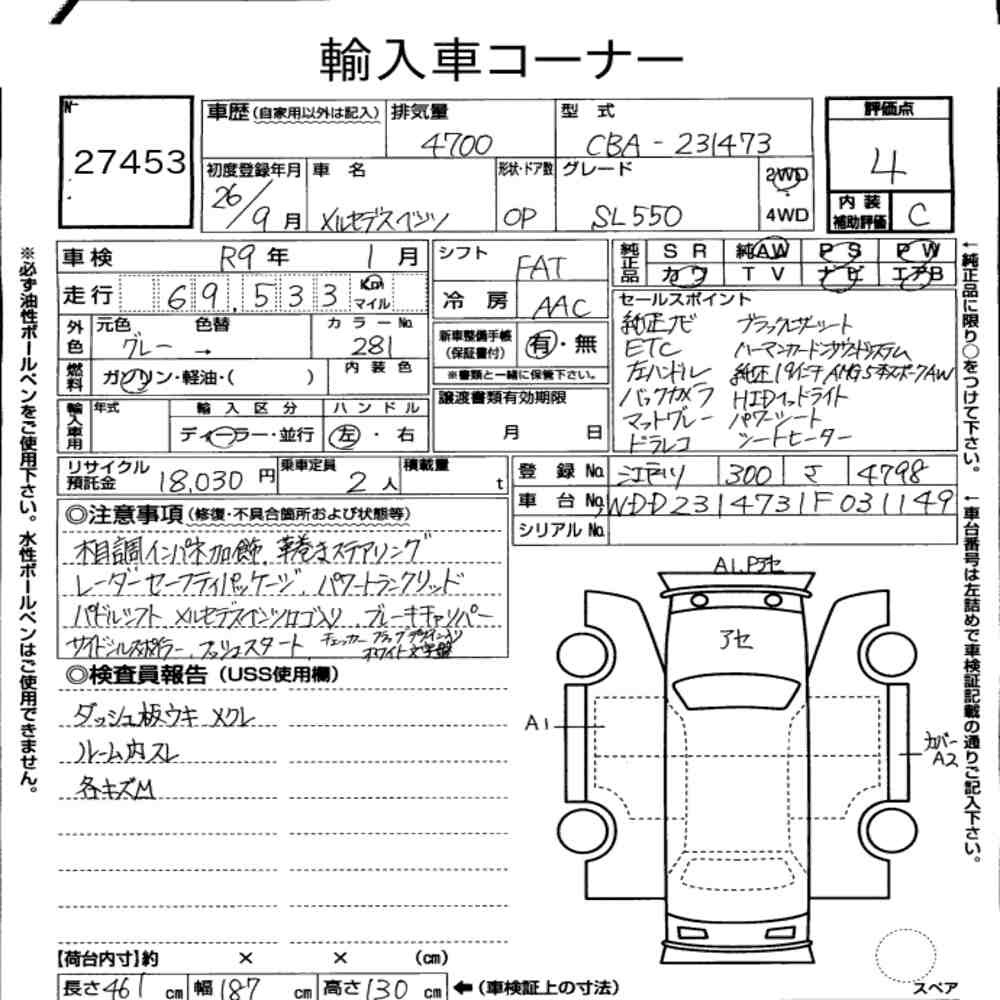 輸入車コーナー
No
27453
車歴(自家用以外は記入) 排気量 4700 型式 CBA-231473
初度登録年月 26/9月 車名 メルセデスベンツ 形状・ドア数 OP グレード SL550 2WD 4WD
評価点 4
内装補助評価 C
車検 R9年 1月
走行 69,533 Km マイル
外色 元色 グレー 色替 → カラーNo. 281
燃料 ガソリン・軽油・( ) 内装色
輸入車用 年式 輸入区分 ディーラー・並行 ハンドル 左・右
シフト FAT
冷房 AAC
新車整備手帳(保証書付) 有・無
※書類と一緒に保管下さい。
譲渡書類有効期限
月 日
純正品 SR 純AW PS PW
カワ TV ナビ エアB
セールスポイント
純正ナビ ブラックレザーシート
ETC ハーマンカードンサウンドシステム
左ハンドル 純正19インチAMG5本スポークAW
バックカメラ HIDヘッドライト
マットグレー パワーシート
ドラレコ シートヒーター
リサイクル預託金 18,030円 乗車定員 2人 積載量 t
登録No. 江戸川 300 さ 4798
車台No. WDD2314731F031149
シリアルNo.
◎注意事項(修復・不具合箇所および状態等)
木目調インパネ加飾、革巻きステアリング
レーダーセーフティパッケージ、パワートランクリッド
パドルシフト メルセデスベンツロゴ入り ブレーキキャリパー
サイドシルスポイラー、プッシュスタート チェッカーフラッグデザイン入り
ホワイト文字盤
◎検査員報告(USS使用欄)
ダッシュ板ウキ メクレ
ルーム内スレ
各キズM
A1、Pラセ
アセ
A1
カバー
A2
【荷台内寸】約 × × (cm)
長さ461cm 幅187cm 高さ130cm ←(車検証上の寸法)
スペア
※必ず油性ボールペンをご使用下さい。水性ボールペンはご使用できません。
←純正品に限り○をつけて下さい。
←車台番号は左詰めで車検証記載の通りご記入下さい。